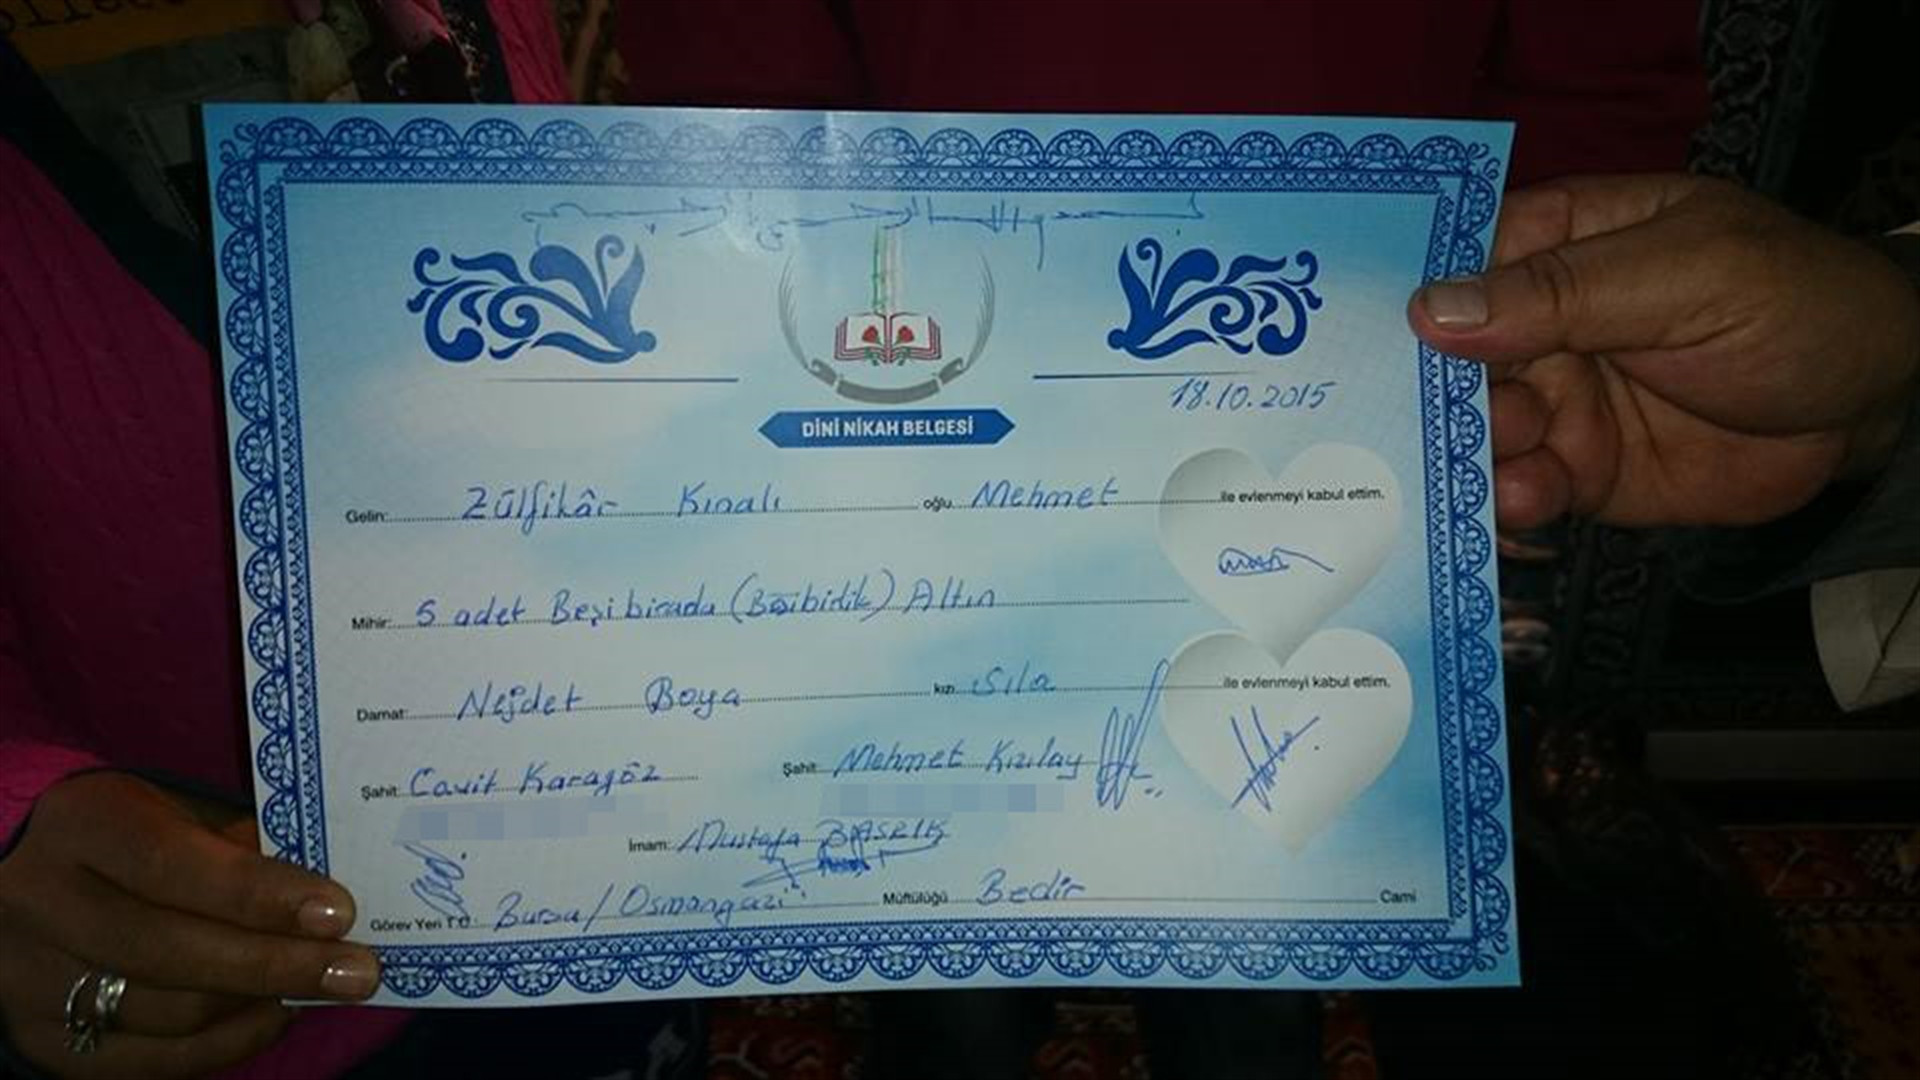 بسم الله الرحمن الرحيم
18.10.2015
DİNİ NİKAH BELGESİ
Gelin: Zülfikâr Kınalı oğlu Mehmet ile evlenmeyi kabul ettim.
Mihir: 5 adet Beşibirada (Beşibirlik) Altın
Damat: Nejdet Boya kızı Sıla ile evlenmeyi kabul ettim.
Şahit: Cavit Karagöz Şahit: Mehmet Kızılay
İmam: Mustafa
Görev Yeri T.C. Bursa/Osmangazi Müftülüğü Bedir Cami